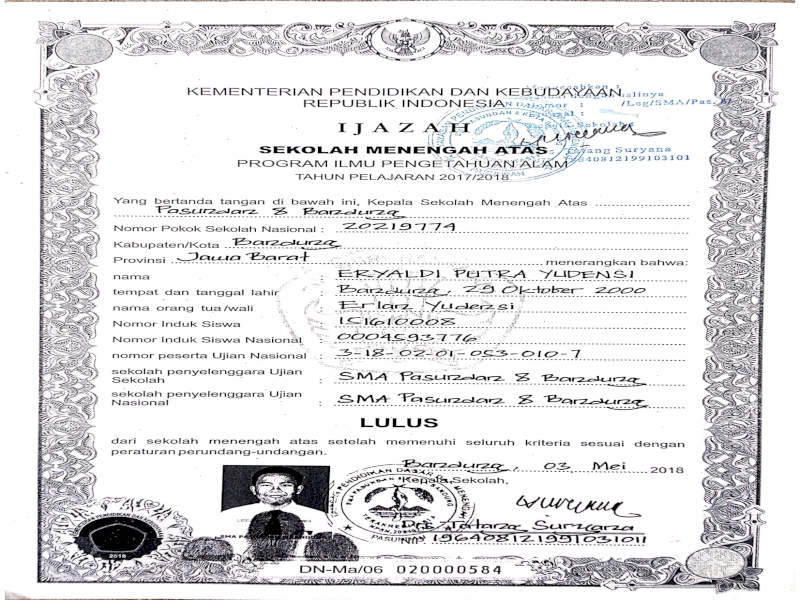 KEMENTERIAN PENDIDIKAN DAN KEBUDAYAAN
REPUBLIK INDONESIA
IJAZAH
SEKOLAH MENENGAH ATAS
PROGRAM ILMU PENGETAHUAN ALAM
TAHUN PELAJARAN 2017/2018
/Leg/SMA/Pas.8/
Suryana
Yang bertanda tangan di bawah ini, Kepala Sekolah Menengah Atas
Pasundan 8 Bandung
Nomor Pokok Sekolah Nasional : 20219774
Kabupaten/Kota Bandung
Provinsi Jawa Barat menerangkan bahwa:
nama : ERYALDI PUTRA YUDENSI
tempat dan tanggal lahir : Bandung, 29 Oktober 2000
nama orang tua/wali : Erlan Yudensi
Nomor Induk Siswa : 151610008
Nomor Induk Siswa Nasional : 0004593776
nomor peserta Ujian Nasional : 3-18-02-01-053-010-7
sekolah penyelenggara Ujian
Sekolah : SMA Pasundan 8 Bandung
sekolah penyelenggara Ujian
Nasional : SMA Pasundan 8 Bandung
LULUS
dari sekolah menengah atas setelah memenuhi seluruh kriteria sesuai dengan
peraturan perundang-undangan.
Bandung, 03 Mei 2018
Kepala Sekolah,
196408121991031011
2018
DN-Ma/06 020000584